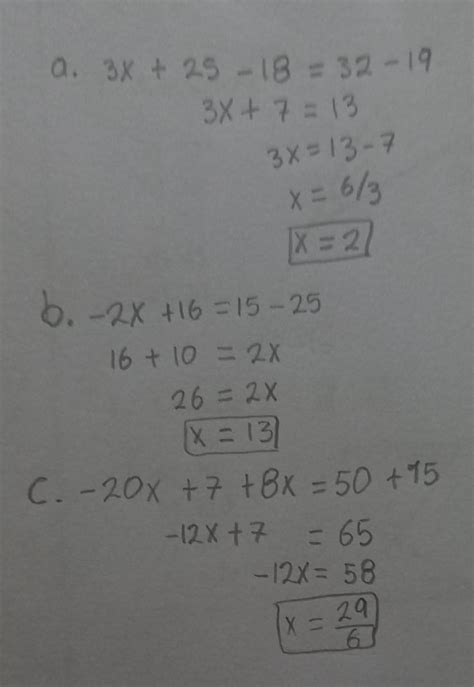 a. 3x + 25 - 18 = 32 - 19
3x + 7 = 13
3x = 13 - 7
x = 6/3
x = 2
b. -2x + 16 = 15 - 25
16 + 10 = 2x
26 = 2x
x = 13
c. -20x + 7 + 8x = 50 + 15
-12x + 7 = 65
-12x = 58
x = 29/6